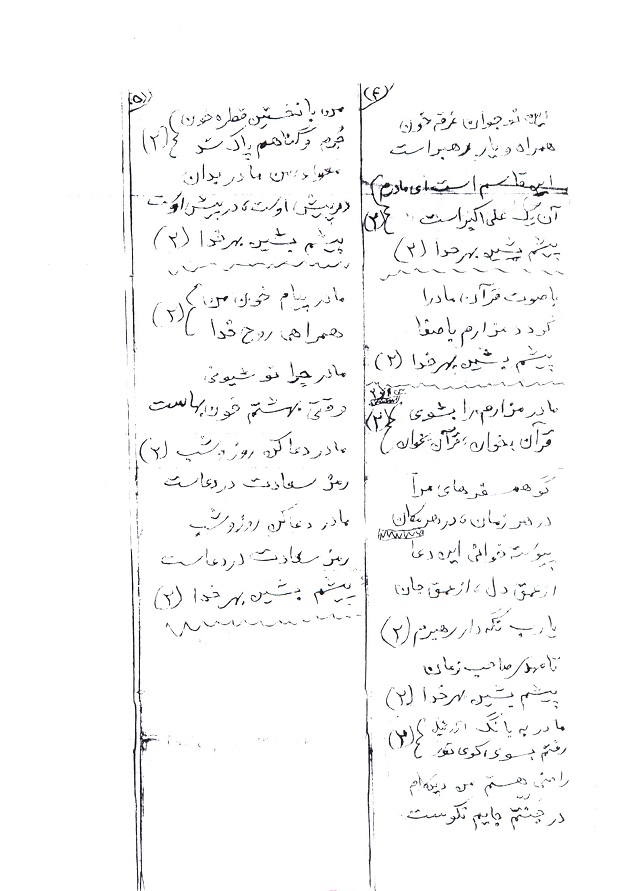 (۴)
این نوجوان غرقه خون
همراه و یار رهبر است
این قاسم است ای مادرم)
آن یک علی اکبر است (۲)
پیشم بشین بهر خدا (۲)
با صوت قرآن مادرا
گردد مزارم با صفا
پیشم بشین بهر خدا (۲)
مادر مزارم را بشوی
قرآن بخوان، قرآن بخوان (۲)
گو همسفرهای مرا
در هر زمان، در هر مکان
پیوسته خوانی این دعا
از عمق دل، از عمق جان
یا رب نگه دار رهبرم (۲)
تا مهدی صاحب زمان
پیشم بشین بهر خدا (۲)
مادر به بانگ
رفتم بسوی کوی (۲)
راضی هستم من دیگه ام
در جنّتم جایم نکوست
(۵)
من با نخستین قطره خون
جُرم و گناهم پاک شد (۲)
مادر بدان
در پیش اوست، در پیش اوست
پیشم بشین بهر خدا (۲)
مادر پیام خون من
همراهی روح خدا (۲)
مادر چرا تو شیونی
وقتی بهشتم خون بهاست
مادر دعا کن روز و شب (۲)
رمز سعادت در دعاست
مادر دعا کن روز و شب
رمز سعادت در دعاست
پیشم بشین بهر خدا (۲)